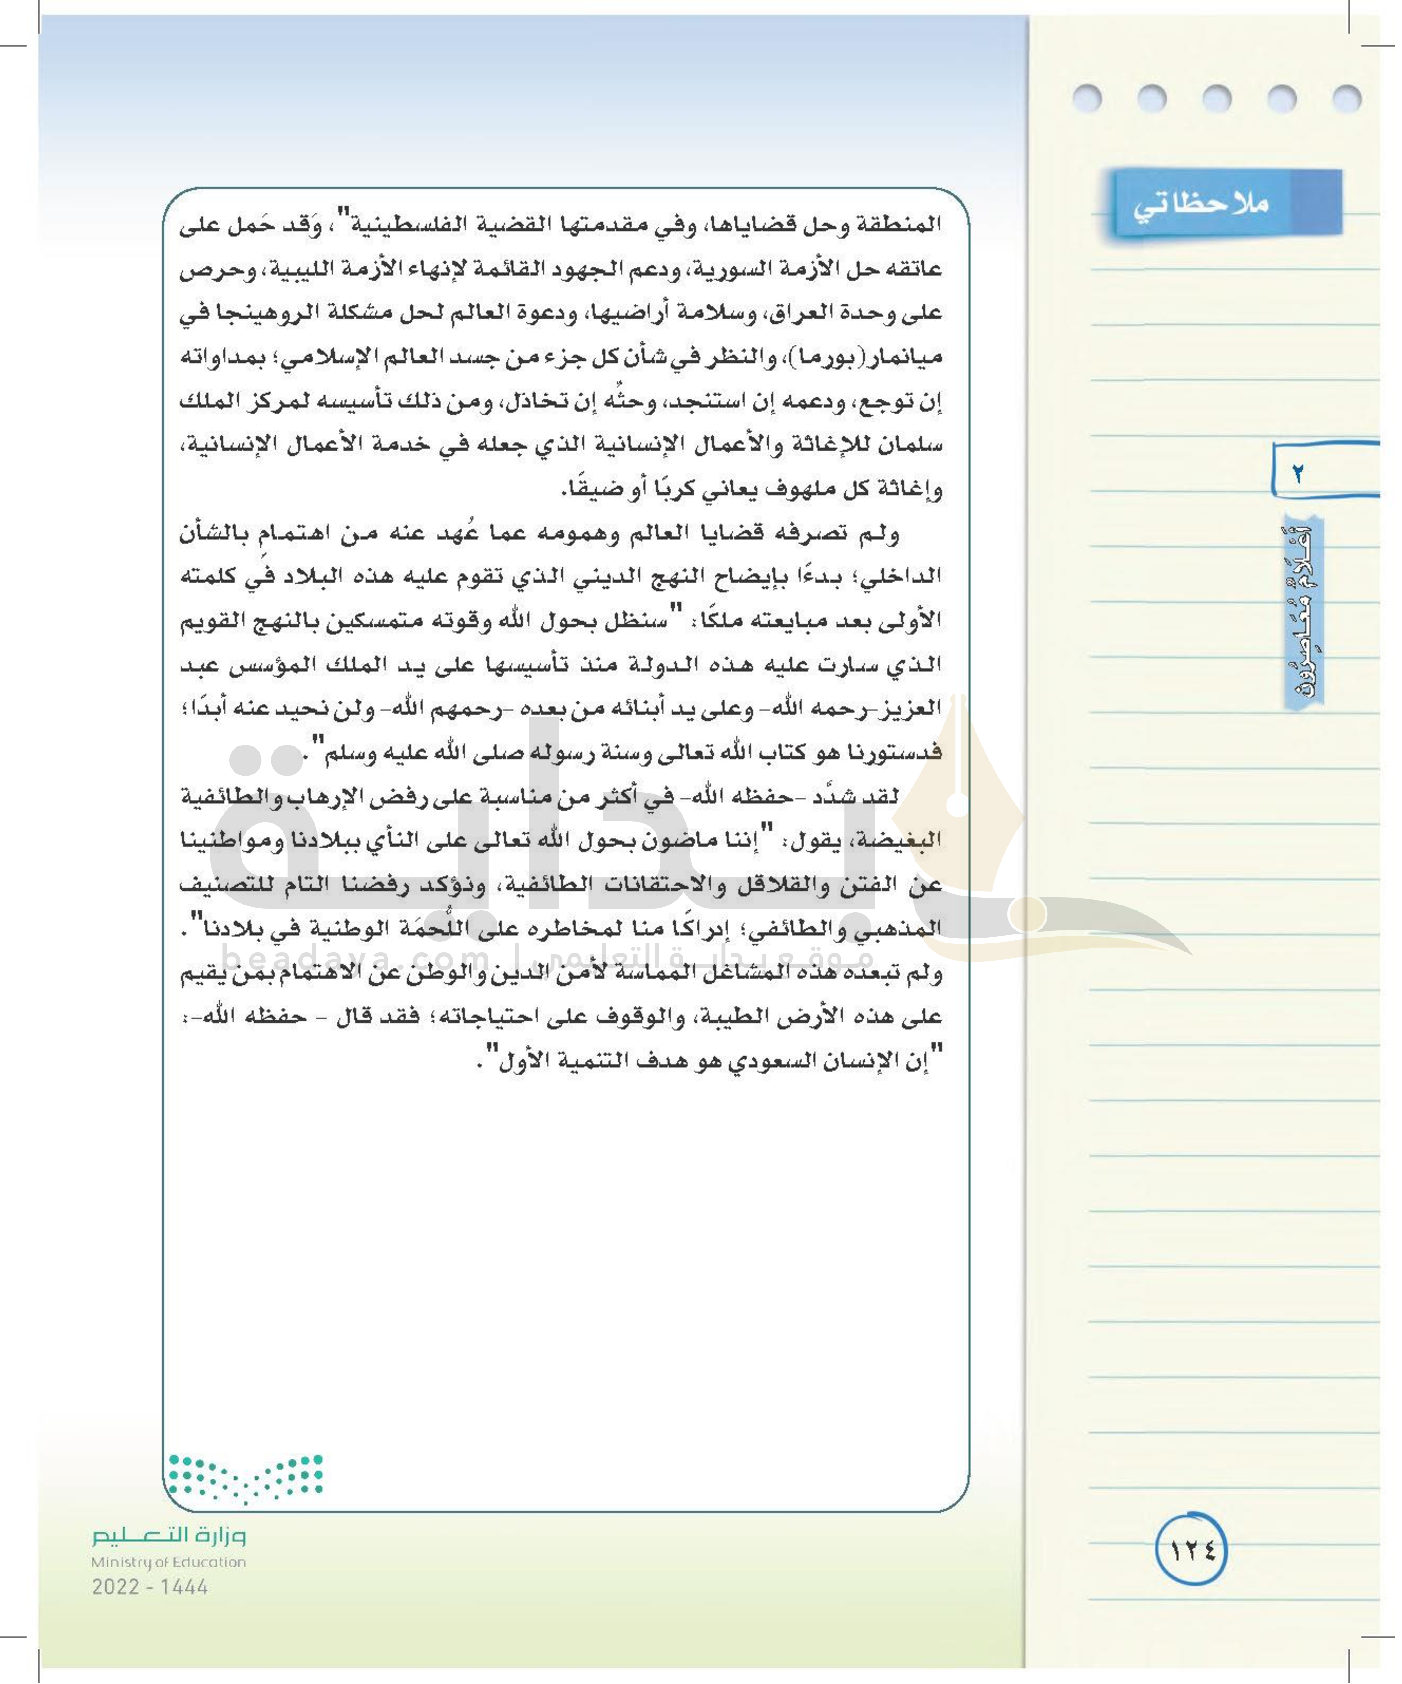 ملاحظاتي
٢
أَعْلَامٌ مُعَاصِرُون
المنطقة وحل قضاياها، وفي مقدمتها القضية الفلسطينية"، وَقد حَمل على
عاتقه حل الأزمة السورية، ودعم الجهود القائمة لإنهاء الأزمة الليبية، وحرص
على وحدة العراق، وسلامة أراضيها، ودعوة العالم لحل مشكلة الروهينجا في
ميانمار(بورما)، والنظر في شأن كل جزء من جسد العالم الإسلامي؛ بمداواته
إن توجع، ودعمه إن استنجد، وحثُّه إن تخاذل، ومن ذلك تأسيسه لمركز الملك
سلمان للإغاثة والأعمال الإنسانية الذي جعله في خدمة الأعمال الإنسانية،
وإغاثة كل ملهوف يعاني كربًا أو ضيقًا.
ولم تصرفه قضايا العالم وهمومه عما عُهد عنه من اهتمامٍ بالشأن
الداخلي؛ بدءًا بإيضاح النهج الديني الذي تقوم عليه هذه البلاد في كلمته
الأولى بعد مبايعته ملكًا: "سنظل بحول الله وقوته متمسكين بالنهج القويم
الذي سارت عليه هذه الدولة منذ تأسيسها على يد الملك المؤسس عبد
العزيز-رحمه الله- وعلى يد أبنائه من بعده -رحمهم الله- ولن نحيد عنه أبدًا؛
فدستورنا هو كتاب الله تعالى وسنة رسوله صلى الله عليه وسلم".
لقد شدَّد -حفظه الله- في أكثر من مناسبة على رفض الإرهاب والطائفية
البغيضة، يقول: "إننا ماضون بحول الله تعالى على النأي ببلادنا ومواطنينا
عن الفتن والقلاقل والاحتقانات الطائفية، ونؤكد رفضنا التام للتصنيف
المذهبي والطائفي؛ إدراكًا منا لمخاطره على اللُّحمَة الوطنية في بلادنا".
ولم تبعده هذه المشاغل المماسة لأمن الدين والوطن عن الاهتمام بمن يقيم
على هذه الأرض الطيبة، والوقوف على احتياجاته؛ فقد قال - حفظه الله-:
"إن الإنسان السعودي هو هدف التنمية الأول".
بداية
موقع بداية التعليمي | beadaya.com
وزارة التعليم
Ministry of Education
2022 - 1444
١٢٤